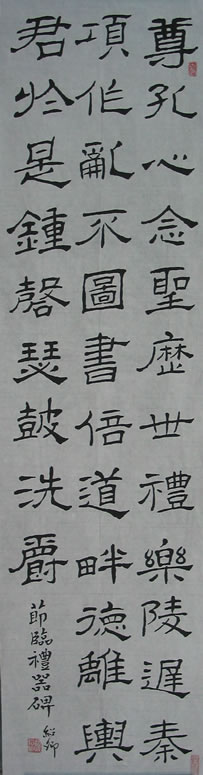 尊孔心念聖歷世禮樂陵遲秦
項作亂不圖書倍道畔德離輿
君於是鍾磬瑟鼓洗爵
節臨禮器碑